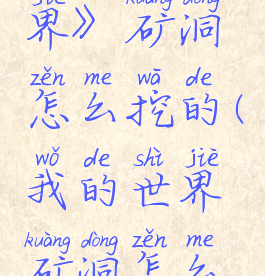 jiè kuàng dòng
界》 矿洞
zěn me wā de
怎么挖的(
wǒ de shì jiè
我的世界
kuàng dòng zěn me
矿洞怎么